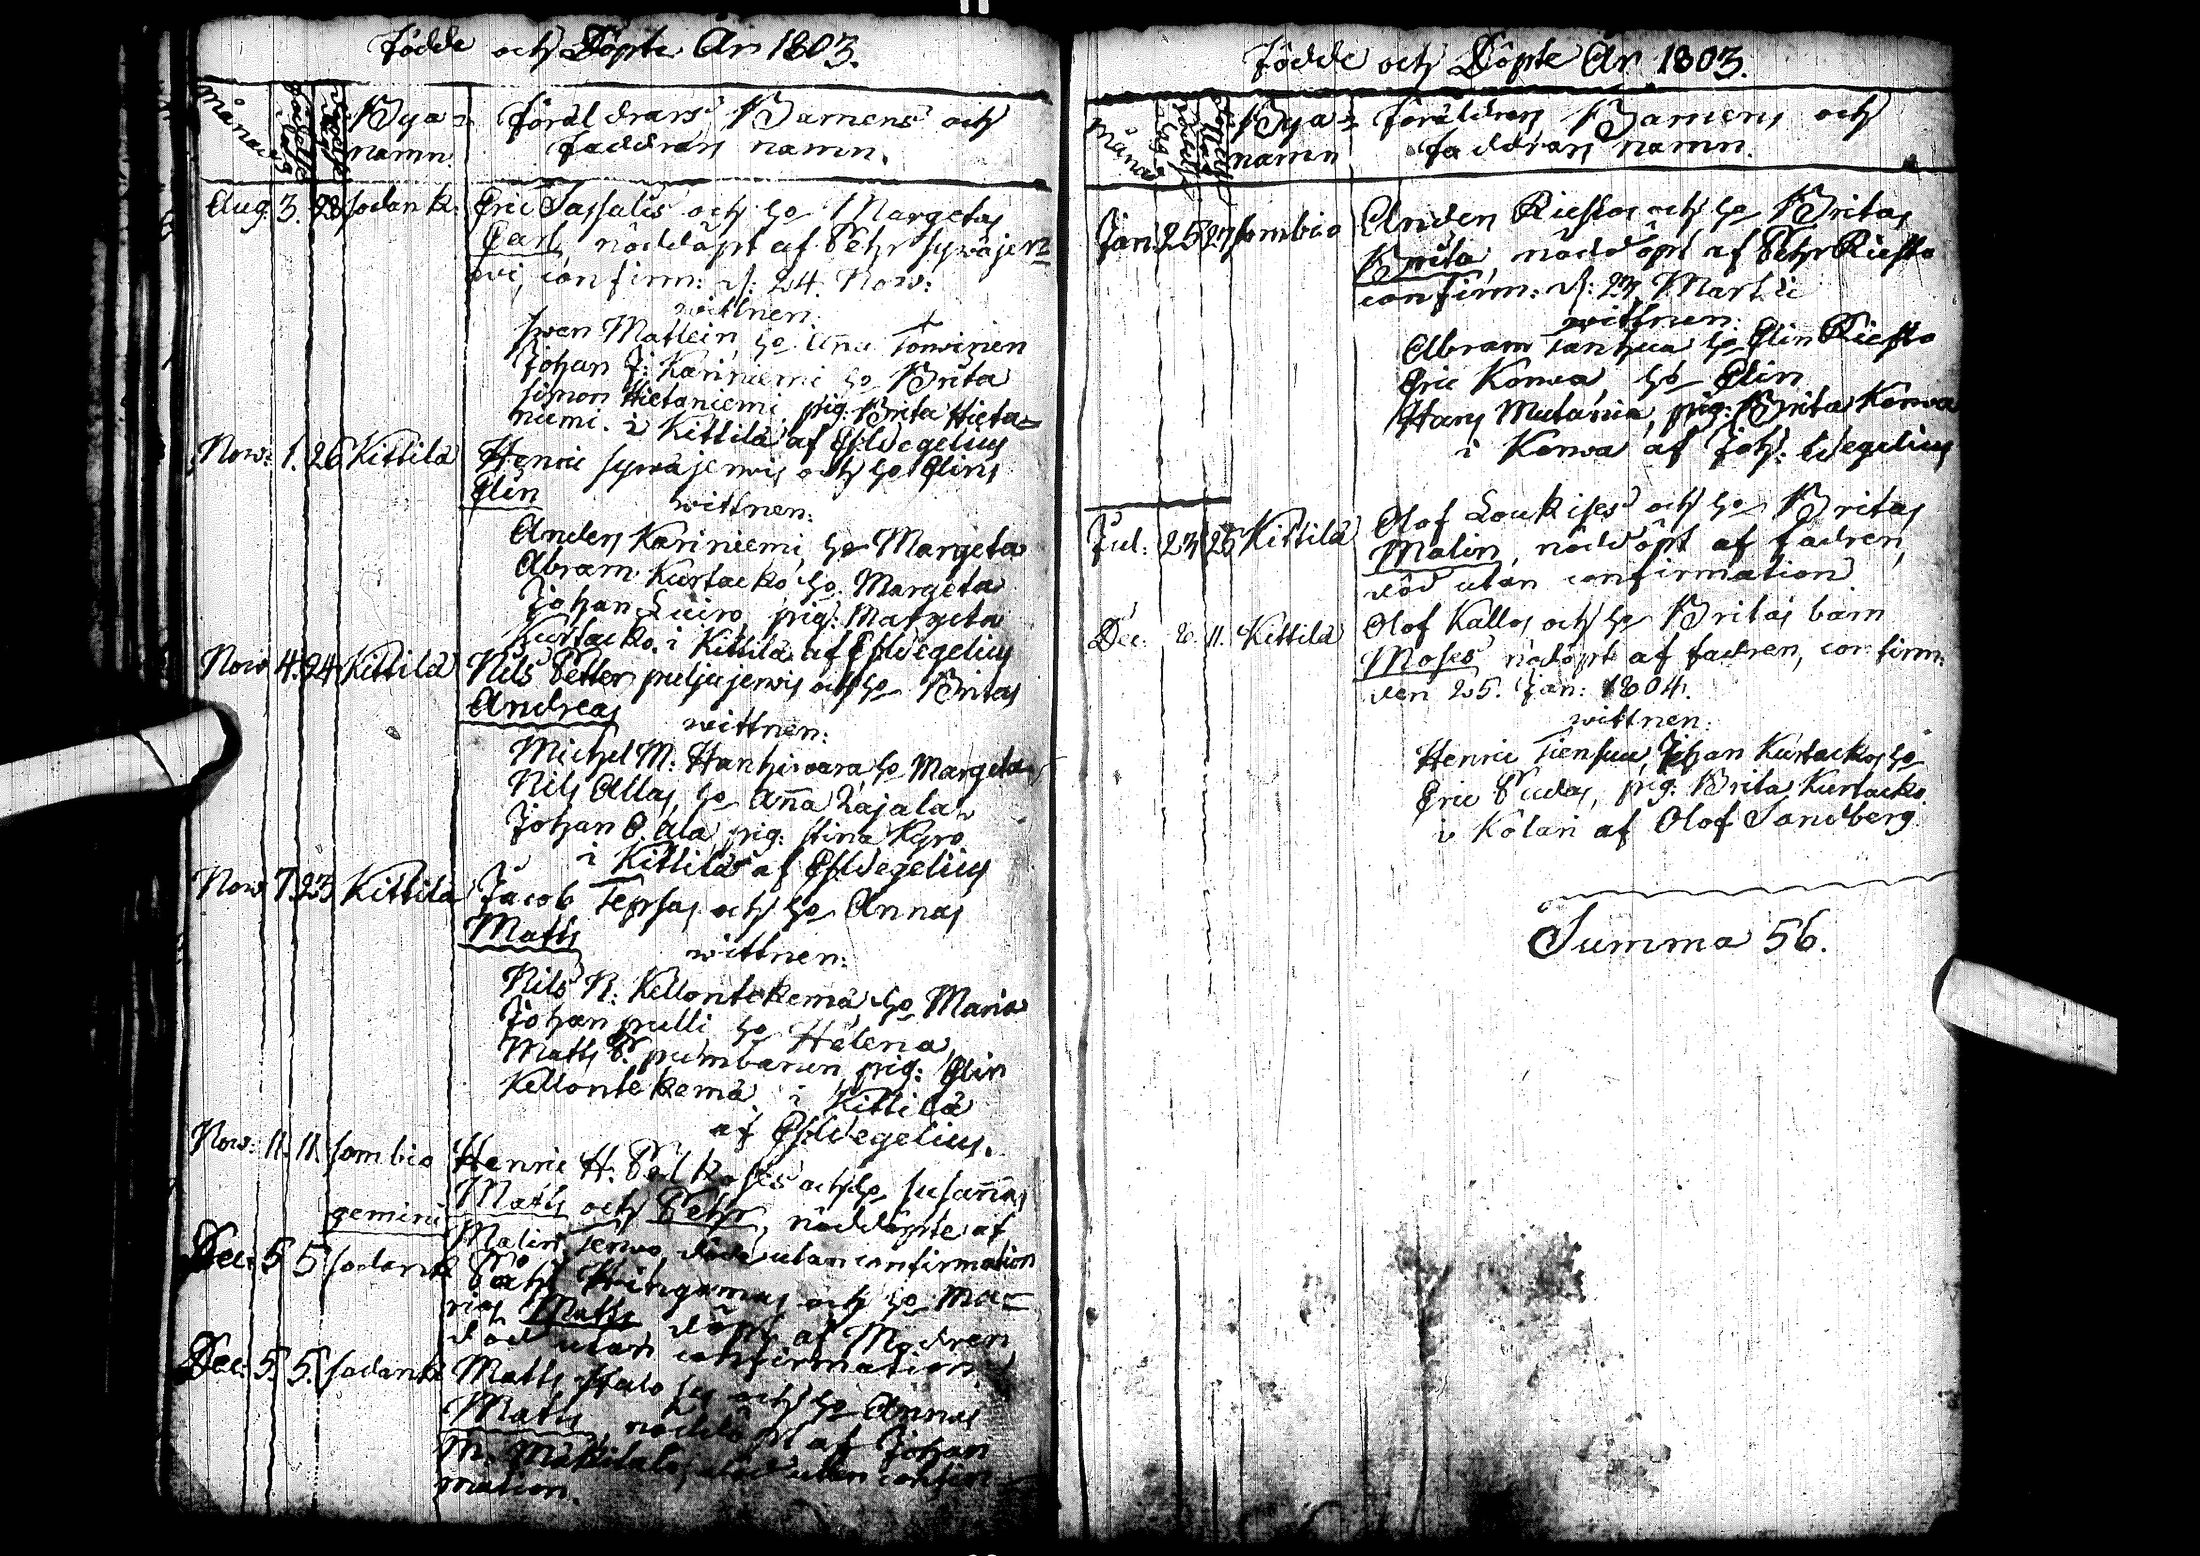 Födde och Döpte År 1803.
Månad
födelse dag
Bya=
namn.
föräldrars Barnens och
faddrars namn.
Aug. 3. 28 Sodank:
Eric Sassalis och ho Margetas
Carl, nöddöpt af Pehr Syväjer=
wi, confirm: d: 24. Nov:
wittnen:
Swen Mattein, ho Anna Torvinen
Johan J: Kariniemi ho Brita
Simon Hietaniemi, pig: Brita Hieta=
niemi. i Kittilä af Es. Wegelius
Nov: 1. 26 Kittilä
Henric Syväjerwis och ho Elins
Elin
wittnen:
Anders Kariniemi, ho Margeta
Abram Kurtacko ho Margeta
Johan Luiro, pig: Margeta
Kurtacko. i Kittilä af Es. Wegelius
Nov 4. 24 Kittilä
Nils Petter puljujerwis och ho Britas
Andreas
wittnen:
Michel M: Hanhivara ho Margeta
Nils Allas, ho Anna Zajala
Johan O. Ala pig: Stina Kyrö
i Kittilä af Es. Wegelius
Nov 7. 23 Kittilä
Jacob Tepsas och ho Annas
Matts
wittnen:
Nils N: Kellontekemä, ho Maria
Johan pulli ho Helena
Matts P. pumbanen pig: Elin
Kellontekemä i Kittilä
af Es. Wegelius.
Nov: 11. 11. Sombio
Henric H. Pelkoses och ho Susannas
gemini
Matts och Pehr, nöddöpte af
Malin Jerwo, döde utan confirmation
Dec. 5 5 Sodank
Påhl Kringamas och ho Ma=
rias Matts döpt af Modren
död utan confirmation.
Dec. 5. 5. Sodank
Matts Halo sy och ho Annas
Matts, nöddöpt af Johan
M. Mäkitalo, död utan confir=
mation.
Födde och Döpte År 1803.
Månad
Bya=
namn
föräldrars Barnens och
faddrars namn.
Jan 25 27 Sombio
Anders Riestos och ho Britas
Brita, nöddöpt af Pehr Riesto
confirm: d: 23. Martii
wittnen:
Abram Tanhua ho Elin Riesto
Eric Korwa, ho Elin
Hans Mutania, pig: Brita Korwa
i Korwa af Joh: Wegelius
Jul: 23 25 Kittilä
Olof Loukises och ho Britas
Malin, nöddöpt af fadren,
död utan confirmation
Dec. 11. Kittilä
Olof Kallos och ho Britas barn
Moses nödöpt af fadren, confirm:
den 25. Jan: 1804.
wittnen:
Henric Tiensuu, Johan Kurtackos ho
Eric Pudas, pig: Brita Kurtacko.
i Kolari af Olof Sandberg
Summa 56.